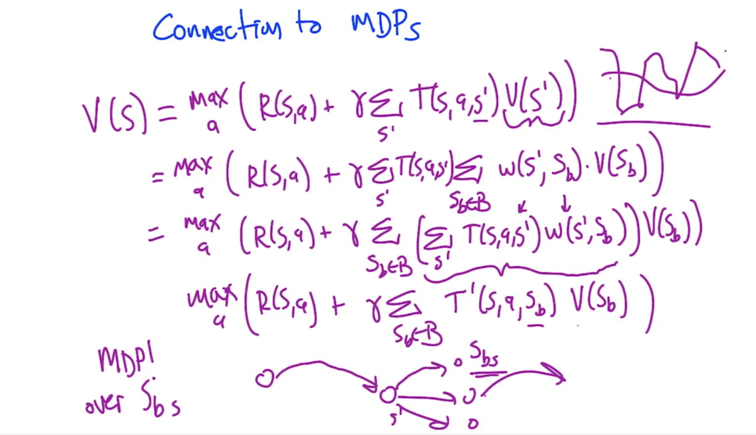 Connection to MDPs
V(s) = max a (R(s,a) + γ Σ s' T(s,a,s') V(s'))
= max a (R(s,a) + γ Σ s' T(s,a,s') Σ Sb∈B w(s',Sb)·V(Sb))
= max a (R(s,a) + γ Σ Sb∈B (Σ s' T(s,a,s') w(s',Sb)) V(Sb))
max a (R(s,a) + γ Σ Sb∈B T'(s,a,Sb) V(Sb))
MDP!
over Sbs
Sbs
s'